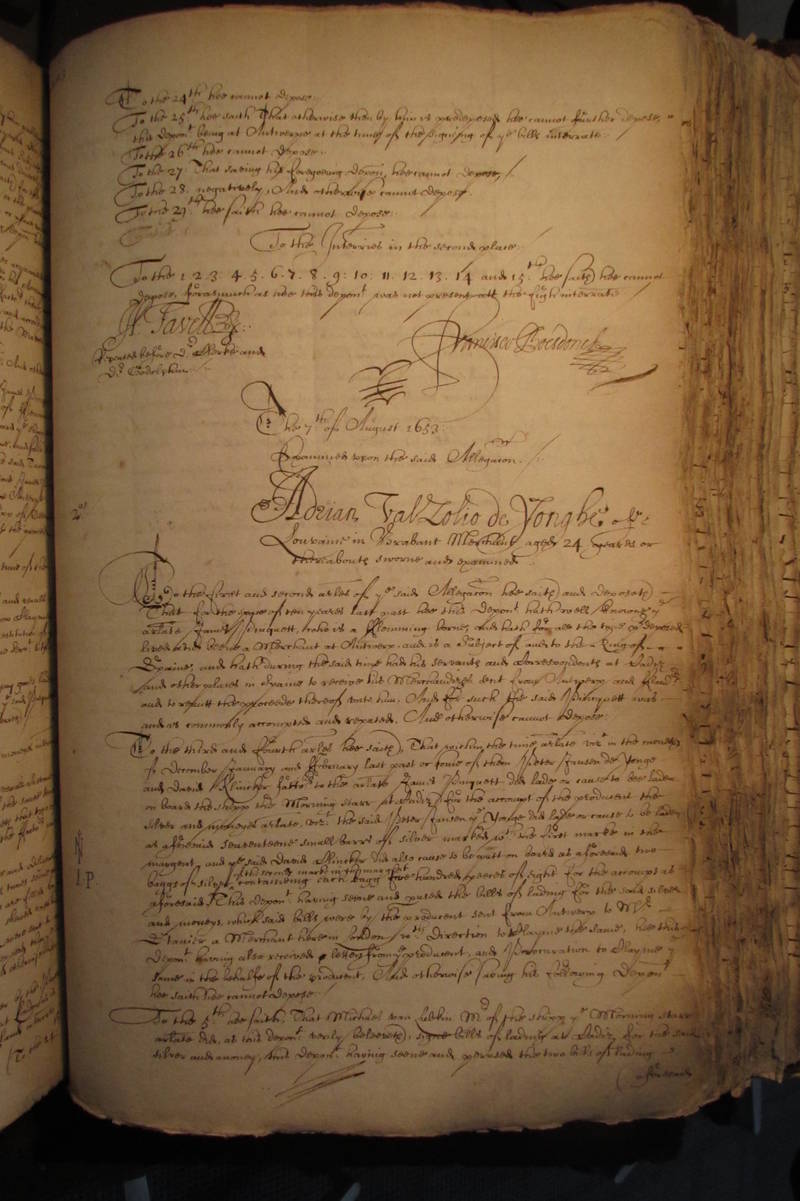 To the 24th hee cannot depose.
To the 25th hee saith That otherwise then by him is predeposed hee cannot further depose,
this depont being at Antwerpe at the time of the signing of ye bills interrate. /
To the 26th hee cannot depose.
To the 27. That saving his foregoeing depon, hee cannot depose, /
To the 28. negatively, And otherwise cannot depose.
To the 29th hee saith hee cannot depose.
To the Interries in the second place.
To the 1. 2. 3. 4. 5. 6. 7. 8. 9. 10. 11. 12. 13. 14 and 15th hee saith hee cannot
depose, forasmuch as hee this depont was not present att the interrate /
Repeated before Dr Clerke and
Dr Godolphin.
Francisco
The 7th of August 1653.
Examined upon the said Allegacon. /.
2us
Adrian Valzolio de Jonghe of
Louvaine in Brabant Merchant aged 24 yeares or
thereabouts sworne and examined
To the first and second arles of ye said Allegacon hee saith and deposeth
That for the space of ten yeares last past hee this depont hath well knowne ye
arlate James Pinquett, who is a Flemming borne, and hath for all the tyme predeposed
lived and beene a Merchant at Antwerp, and is a Subject of and to the King of
Spaine, and hath during the said time had his servants and Correspondents at Cadiz
and other places in Spaine to receive his Merchandizes sent from Antwerp and
and to remitt the proceede thereof unto him, And for such the said Pinquett was
and is commonly accompted and reputed. And otherwise cannot depose.
To the third and fourth arles hee saith, That within the time arlate vizt in the moneths
of December January and February last past or some of them Peter Jansen de Jonge
and David Flincker factors to the arlate James Pinquett did lade or cause to be laden
on board the shipp the Morning Starr at Cadiz for the account of the producent the
silver and moneyes arlate, vizt the said Peter Jansen de Jonge did lade or cause to be laden
as aforesaid seventeene small barrs of silver marked wth the first marke in the
margent, and ye said David Flincker did also cause to be putt on board as aforesaid two
of the second marke in the margent
baggs of silver containeing each bagg five hundred peeces of eight for the accompt as
P
aforesaid This depont having seene and perused the bills of lading for the said silver
and moneys, which said bills were by the producent sent from Antwerp to Mr
Stanier a Merchant here in London, wth direction to clayme the same, hee this
depont having also received letters from ye producent, and Procuration to clayme ye
same in the behalfe of the producent, And otherwise saving his following depont
hee saith hee cannot depose.
To the 5th hee saith, That Michael van Lubkin Mr of the shipp ye Morning Starr
arlate did, as this depont verily beleeveth, signe bills of lading at Cadiz for the said
silver and money, this depont having seene and perused the two bills of lading